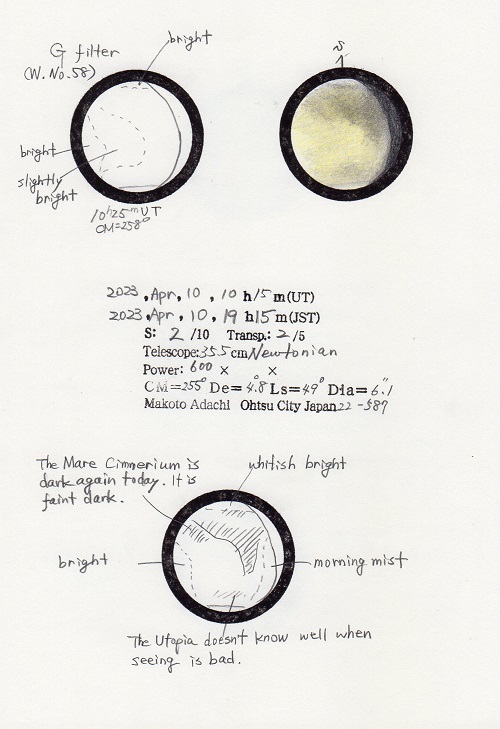 G filter
(W.No.58)
bright
S
bright
slightly
bright
10h25mUT
CM=258°
2023,Apr,10,10h15m(UT)
2023,Apr,10,19h15m(JST)
S: 2/10 Transp.: 2/5
Telescope:355cm/Newtonian
Power: 600 × ×
CM=255° De=4.8° Ls=49° Dia=6.1"
Makoto Adachi Ohtsu City Japan 22-587
The Mare Cimnerium is
dark again today. It is
faint dark.
whitish bright
bright
morning mist
The Utopia doesn't know well when
seeing is bad.